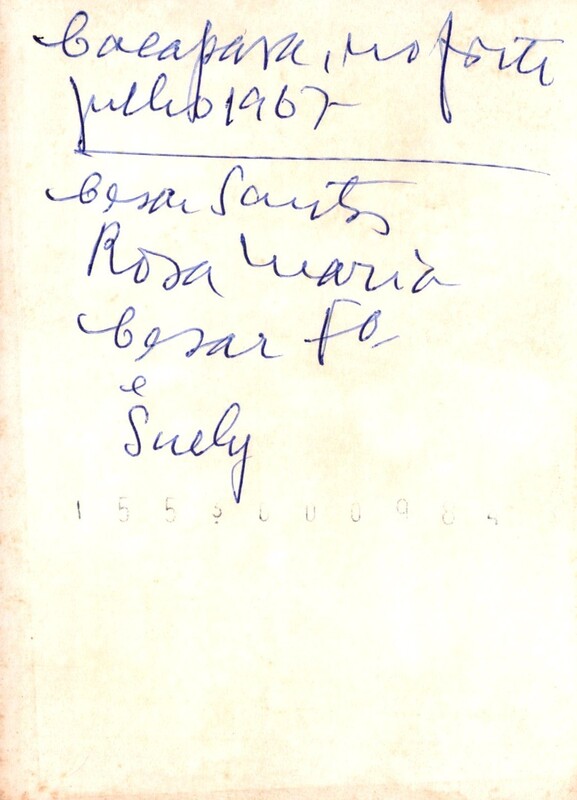 Cacapava, no forte
julho 1967
Cesar Santos
Rosa Maria
Cesar Fo
e
Suely